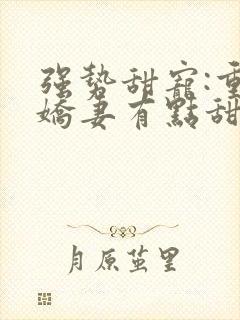 强势甜寵:重
嬌妻有點甜
月原茧里